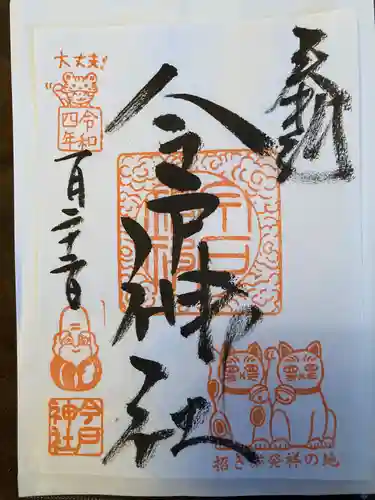 奉拝
今戸神社
今戸神社
招き猫発祥の地
大丈夫!
令和
四年
一月二十二日
今戸
神社